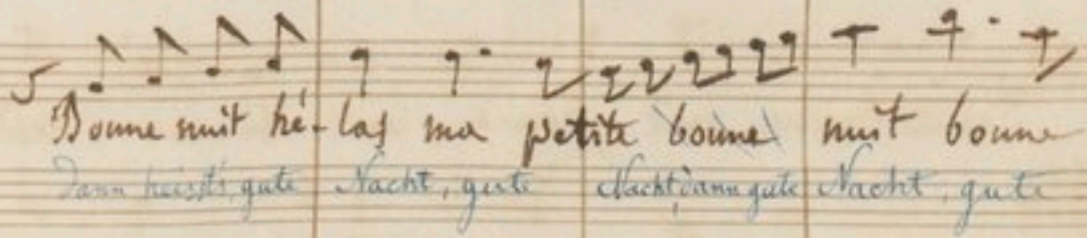 Bonne nuit hé-las ma petite bonne nuit bonne
Dann heisst's gute Nacht, gute Nacht, dann gute Nacht, gute